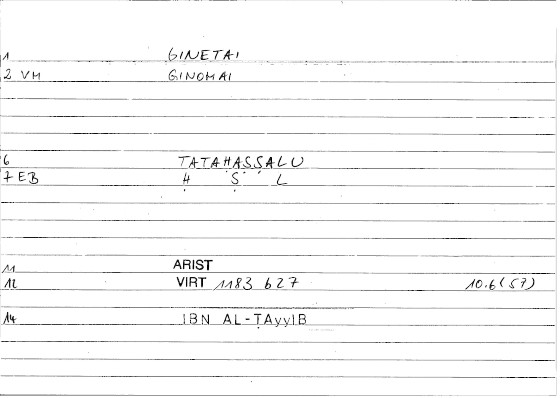 1 GINETAI
2 VM GINOMAI
6 TATAḤAṢṢALU
7 EB Ḥ Ṣ L
11 ARIST
12 VIRT 1183 627 10.6(57)
14 IBN AL-ṬAyyIB